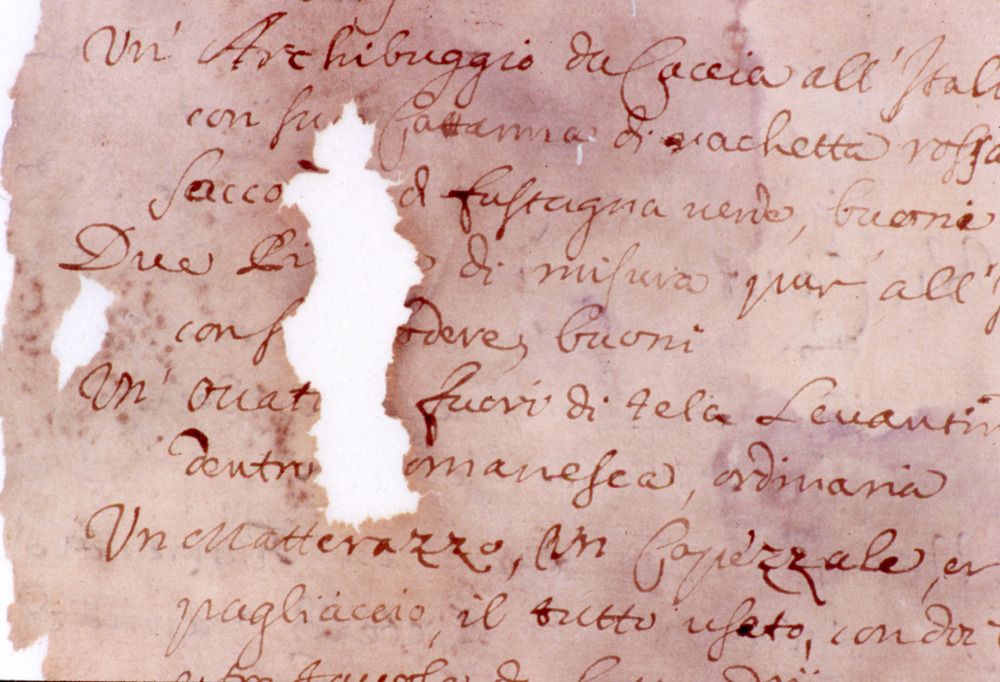 Un' Archibuggio da Caccia all' Ital
con su Cattanna di vachetta rossa
sacco di fustagna uerde, buoni
Due Pi di misura pur all'
con s odere, buoni
Un' ouat fuori di tela Leuantin
dentro omanesca, ordinaria
Un Matterazzo, Un Capezzale, et
pagliaccio, il tutto usato, con doi